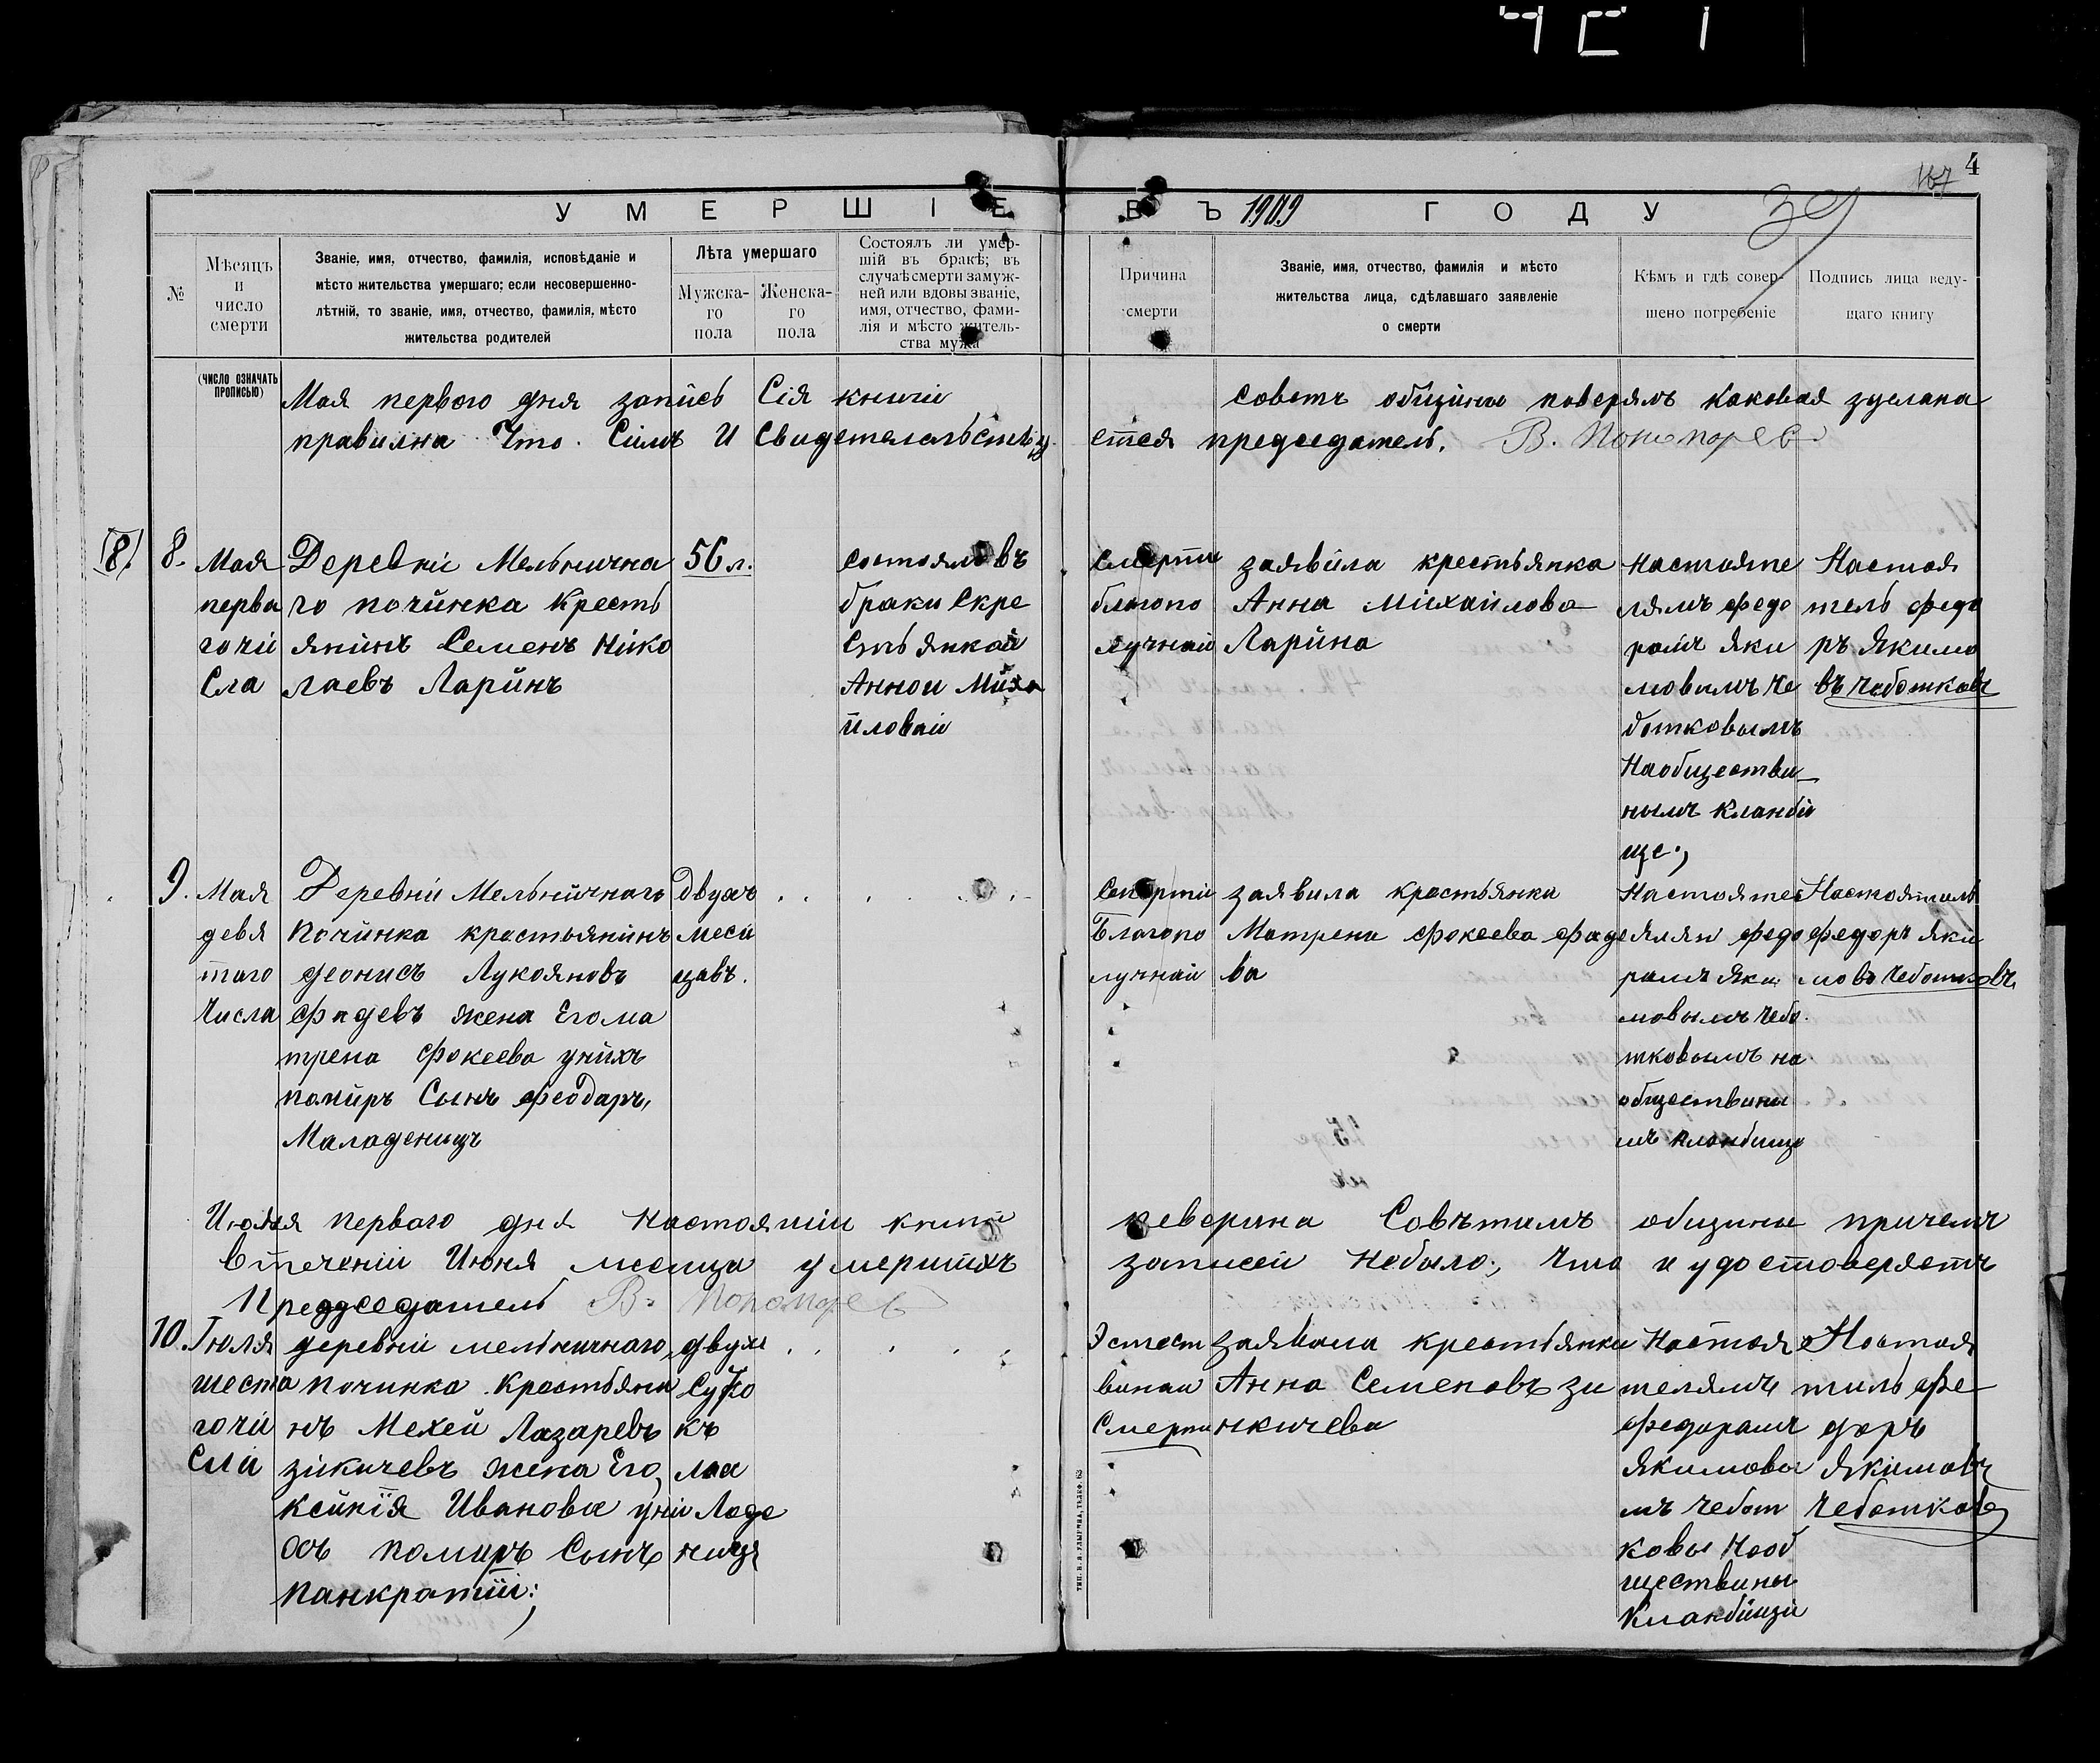 4
167
39
УМЕРШІЕ ВЪ 1909 ГОДУ
№
Мѣсяцъ
и
число
смерти
Званіе, имя, отчество, фамилія, исповѣданіе и
мѣсто жительства умершаго; если несовершенно-
лѣтній, то званіе, имя, отчество, фамилія, мѣсто
жительства родителей
Лѣта умершаго
Мужска-
го
пола
Женска-
го
пола
Состоялъ ли умер-
шій въ бракѣ; въ
случаѣ смерти замуж-
ней или вдовы званіе,
имя, отчество, фами-
лія и мѣсто житель-
ства мужа
Причина
смерти
Званіе, имя, отчество, фамилія и мѣсто
жительства лица, сдѣлавшаго заявленіе
о смерти
Кѣмъ и гдѣ совер-
шено погребеніе
Подпись лица веду-
щаго книгу
(число означать
прописью)
Мая первого дня запись Сія книги советъ общины поверялъ каковая зделана
правилна Что Симъ И Свидетелсльствіу ется председатель. В. Пономорев
8.
8.
Мая
перва
гочи
сла
Деревни Мельнична
го починка Кресть
янинъ Семенъ Нико
лаевъ Ларинъ
56 л.
состоялъ въ
браки скре
стьянкой
Аннои Миха
иловаи
Смерти
благопо
лучнаи
заявила крестьянка
Анна Михаилова
Ларина
Настояте
лямъ федо
рамъ Яки
мовымъ Че
ботковымъ
Наобществи
нымъ кланби
ще.,
Настоя
тель федо
ръ Якимо
въ Чеботковъ
9.
Мая
девя
таго
Числа
Деревни Мельничнаго
Починка крастьянинъ
деонисъ Лукояновъ
Фадевъ жена Егома
трена фокеева унихъ
помиръ Сынъ феодаръ,
Маладеницъ
Двухъ
меси
цавъ.
Смерти
Благопо
лучнаи
заявила крастьянка
Матрена Фокеева Фаде
ва
Настояте
лям федо
рамъ Яки
мовымъ Чебо
тковымъ на
обществины
мъ кланбище
Настоятиль
федоръ Яки
мовъ Чеботковъ
Июля первого дня настоящии книги поверина Совътимъ общины причемъ
втечении Июня месица умершихъ записеи небыло; Что и удостоверяетъ
Преддседатель В. Пономорев
10.
Іюля
шеста
гочи
сли
деревни мельничнаго
починка Крастьяни
нъ Мехей Лазаревъ
зикичевъ жена Его,
ксинїя Иванова уни
хъ помиръ Сынъ
панкратїи:,
двухъ
Суто
къ
маа
Ладе
ницъ
Эстест
винаи
Смерти
заявила крестьянка
Анна Семеновъ зи
нкичева
Настоя
телямъ
федорамъ
Якимовы
мъ Чебот
ковы Нооб
ществины
Кланбищи
Настоя
тиль фе
доръ
Якимовъ
Чеботковъ